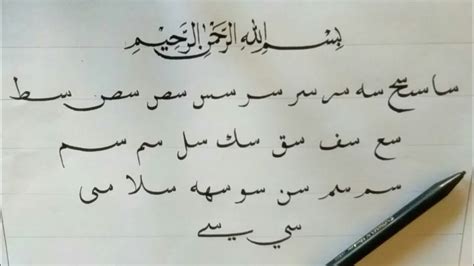 بِسْمِ اللهِ الرَّحْمٰنِ الرَّحِيْمِ
سا سح سه سر سر سر سس سص سص سط
سع سف سق سك سل سم سم
سم سم سن سو سهه سلا
سي سے